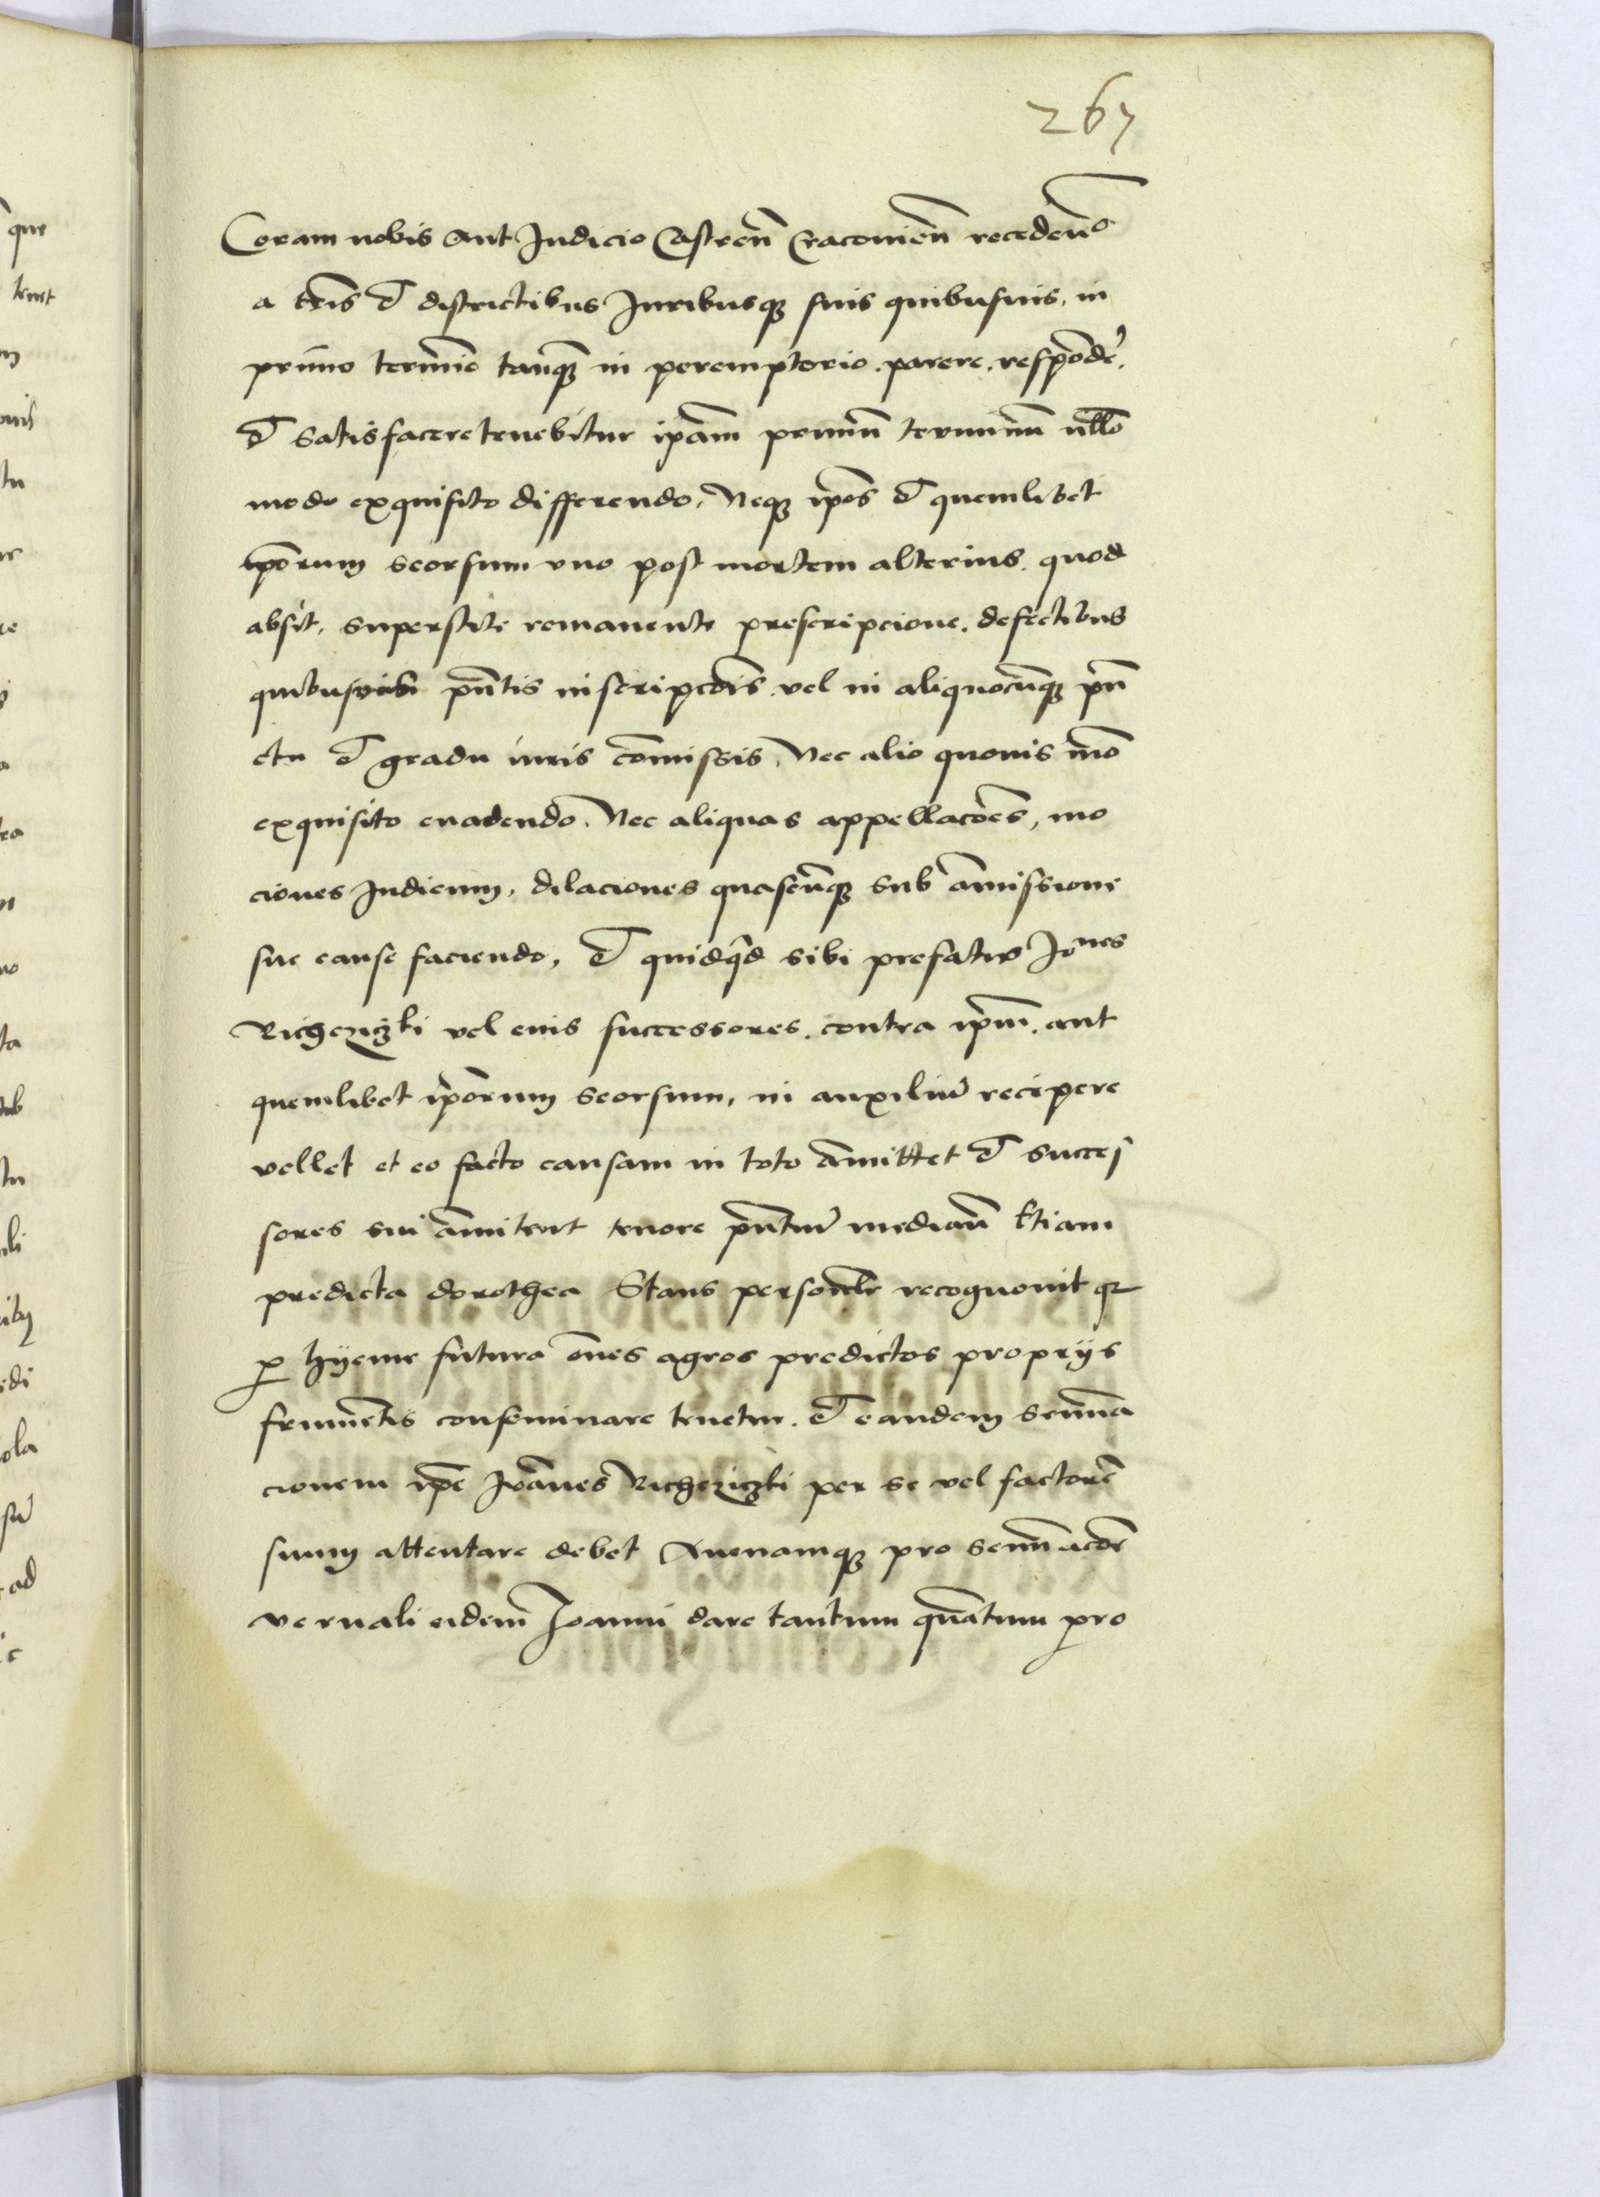 267
Coram nobis aut Judicio Castren̄ Cracouien̄ recedendo
a tr̄is et districtibus Juribusq̨ suis quibusuis, in
primo termīo tanq̄ in peremptorio . parere . respōdē.
et satisfacere tenebitur ip̄am primū terminū nullo
modo exquisito differendo, Neq̨ ip̄os et quemlibet
ip̄orum seorsum vno post mortem alterius. quod
absit, superstite remanente prescripcione. defectibus
quibusuis p̄ntis inscripcōis. vel in aliquocūq̨ pūn
ctu et gradu iuris cōmissis, Nec alio quouis mō
exquisito euadendo. Nec aliquas appellacōes, mo
ciones Judicum, dilaciones quascūq̨ sub āmissione
sue cause faciendo, et quidq̄d sibi prefatus Joānes
Richerzki vel eius successores. contra ip̄m. aut
quemlibet ip̄orum seorsum, in auxiliū recipere
vellet et eo facto causam in toto āmittet et succes
sores sui āmittent tenore p̄ntiū median̄ Etiam
predicta dorothea Stans person̄lr recognouit q̨
p̱ hyeme futura ōnes agros predictos proprijs
frumentis conseminare tenetur. et eandem semīna
cionem ip̄e Joānes Richerzki per se vel factorē
suum attentare debet Auenamq̨ pro semīnacōe
vernali eidem Joanni dare tantum quātum pro